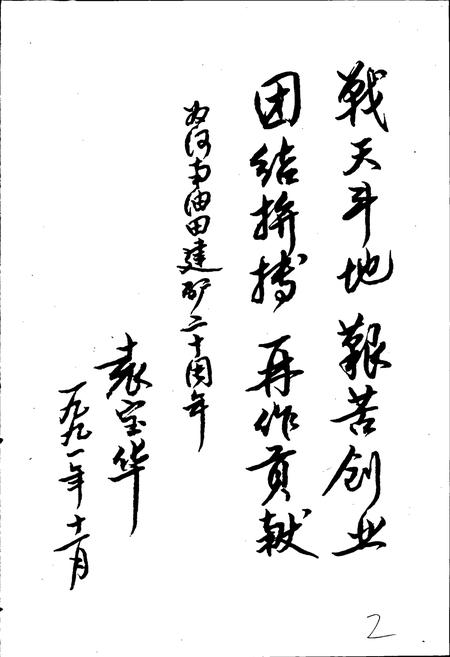 战天斗地 艰苦创业
团结拚搏 再作贡献
为河南油田建矿二十周年
袁宝华
一九九一年十一月
2